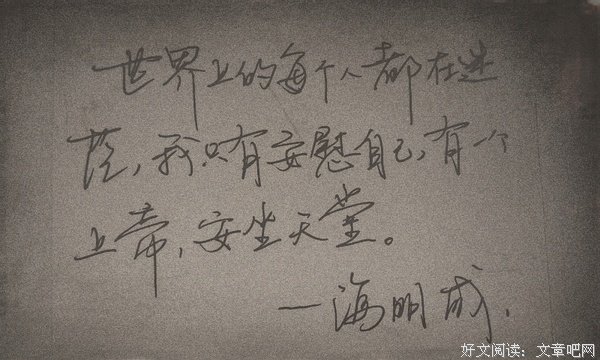 世界上的每个人都在迷
茫，我只有安慰自己，有一个
上帝，安坐天堂。
一海明威.
好文阅读：文章吧网